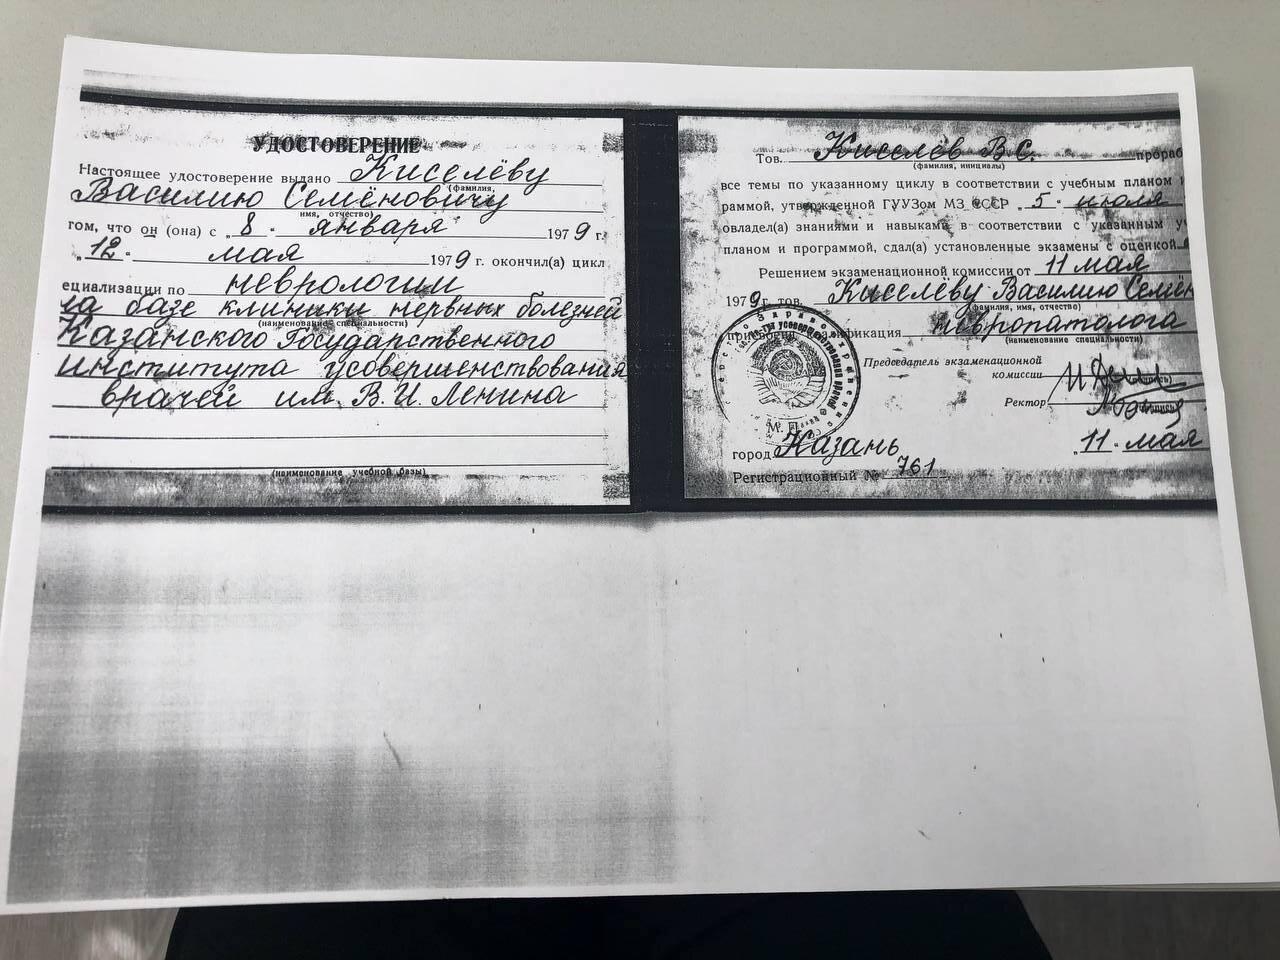 УДОСТОВЕРЕНИЕ
Настоящее удостоверение выдано Киселёву
(фамилия,
Василию Семёновичу
имя, отчество)
том, что он (она) с „8" января 1979 г.
„12" мая 1979 г. окончил(а) цикл
ециализации по неврологии
на базе клиники нервных болезней
(наименование специальности)
Казанского Государственного
института усовершенствования
врачей им. В. И. Ленина
(наименование учебной базы)
Тов. Киселёв В. С. прораб
(фамилия, инициалы)
все темы по указанному циклу в соответствии с учебным планом и
раммой, утвержденной ГУУЗом МЗ СССР „5" июля
овладел(а) знаниями и навыками в соответствии с указанным уч
планом и программой, сдал(а) установленные экзамены с оценкой
Решением экзаменационной комиссии от 11 мая
1979 г. тов. Киселёву Василию Семён
(фамилия, имя, отчество)
присвоена квалификация невропатолога
(наименование специальности)
Председатель экзаменационной
комиссии
(подпись)
Ректор
(подпись)
М. П.
город Казань „11" мая
Регистрационный № 761